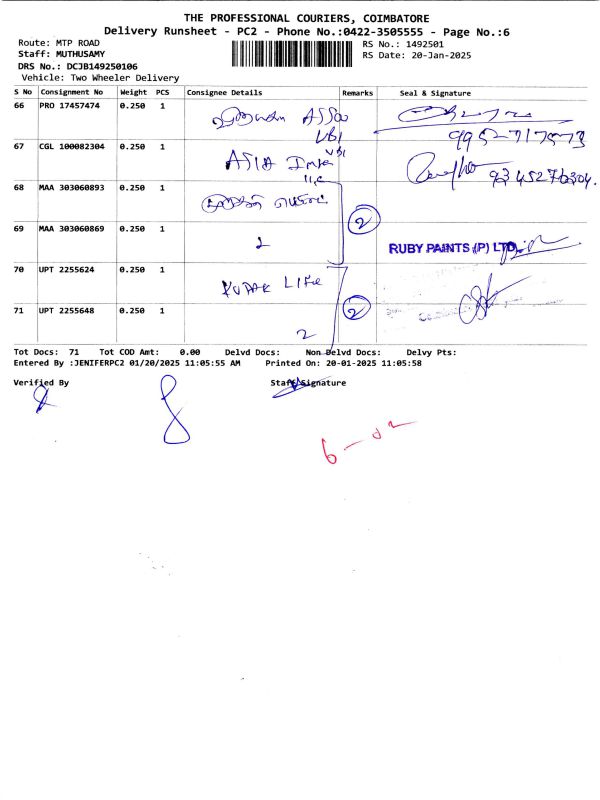 THE PROFESSIONAL COURIERS, COIMBATORE
Delivery Runsheet - PC2 - Phone No.:0422-3505555 - Page No.:6
Route: MTP ROAD
RS No.: 1492501
Staff: MUTHUSAMY
RS Date: 20-Jan-2025
DRS No.: DCJB149250106
Vehicle: Two Wheeler Delivery
S No Consignment No Weight PCS Consignee Details Remarks Seal & Signature
66 PRO 17457474 0.250 1
VBI
67 CGL 100082304 0.250 1 ASIA
VBI
68 MAA 303060893 0.250 1
2
69 MAA 303060869 0.250 1 2 RUBY PAINTS (P) LTD
70 UPT 2255624 0.250 1 LIFE
2
71 UPT 2255648 0.250 1 2
Tot Docs: 71 Tot COD Amt: 0.00 Delvd Docs: Non Delvd Docs: Delvy Pts:
Entered By :JENIFERPC2 01/20/2025 11:05:55 AM Printed On: 20-01-2025 11:05:58
Verified By Staff Signature